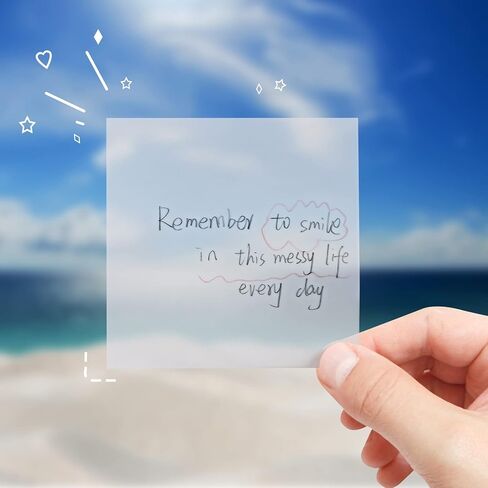 Remember to smile
in this messy life
every day